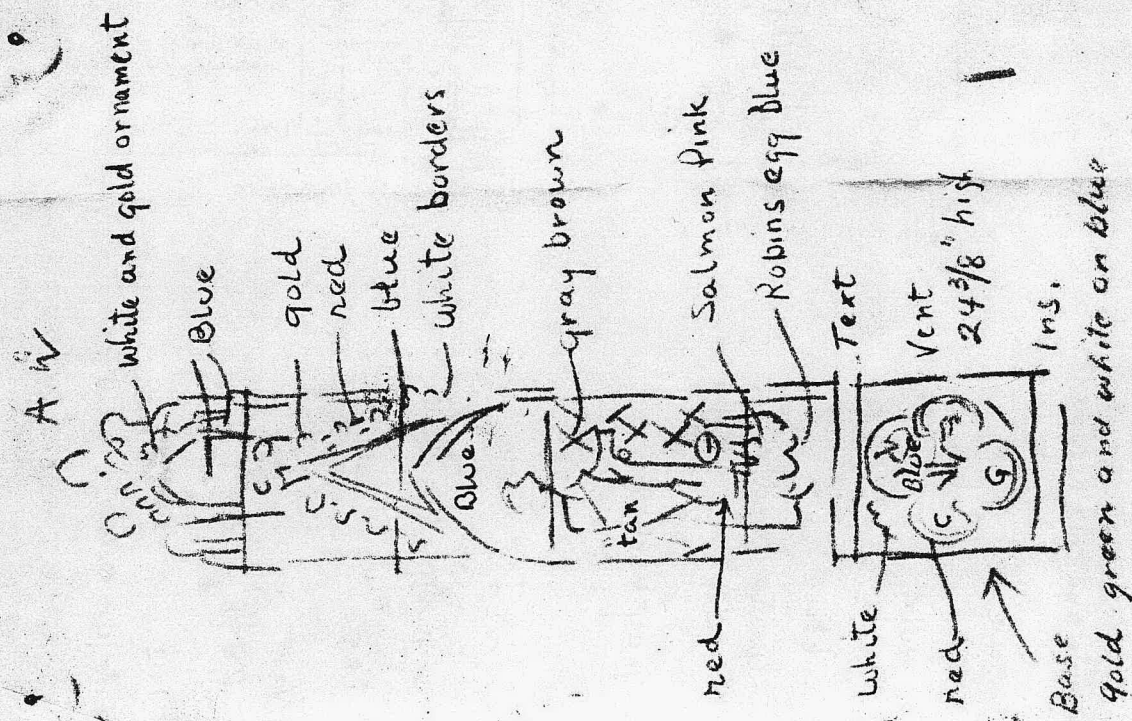 A W
white and gold ornament
Blue
gold
red
blue
white borders
Blue
gray brown
tan
Salmon Pink
red
Robins egg Blue
Text
Vent
24 3/8" high
Ins.
white
Blue
C
G
red
Base
gold green and white on blue